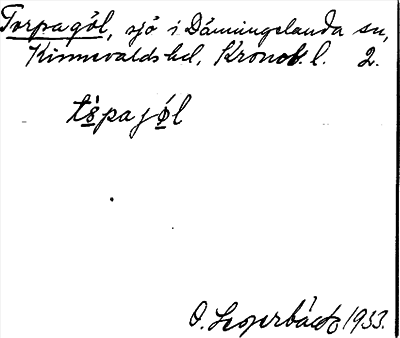 Torpagöl, sjö i Dänningelanda sn,
Kinnevalds hd, Kronob. l. 2.
tò̤pajö́l
O. 1933.